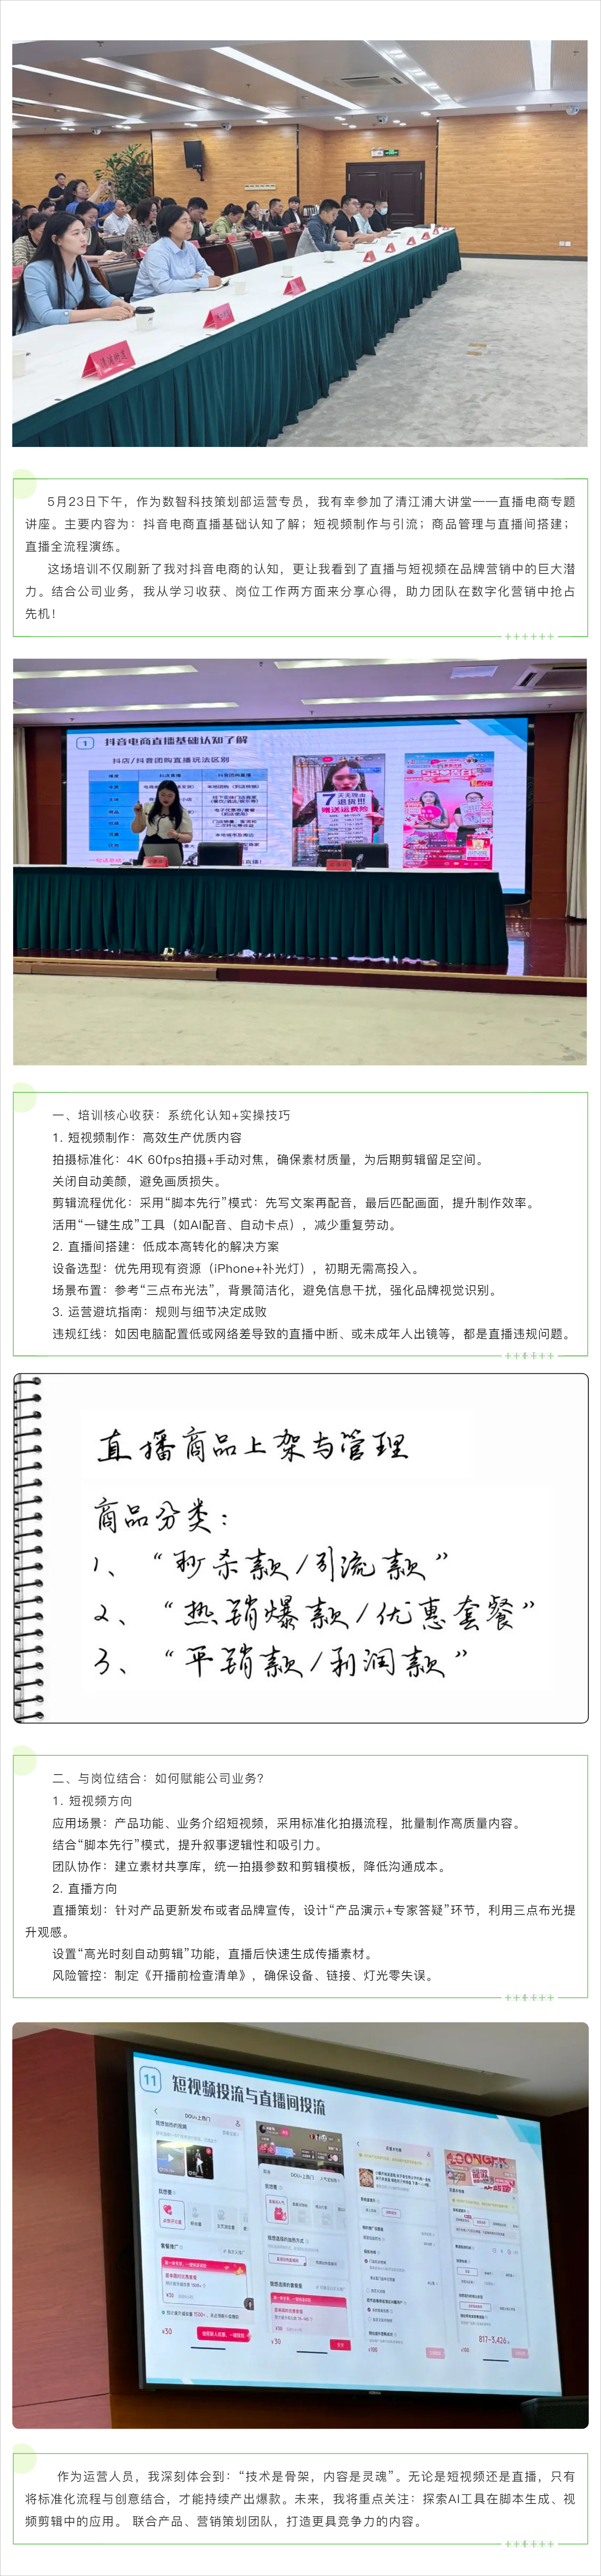 清浦街道
5月23日下午，作为数智科技策划部运营专员，我有幸参加了清江浦大讲堂——直播电商专题
讲座。主要内容为：抖音电商直播基础认知了解；短视频制作与引流；商品管理与直播间搭建；
直播全流程演练。
这场培训不仅刷新了我对抖音电商的认知，更让我看到了直播与短视频在品牌营销中的巨大潜
力。结合公司业务，我从学习收获、岗位工作两方面来分享心得，助力团队在数字化营销中抢占
先机！
1 抖音电商直播基础认知了解
抖店/抖音团购直播玩法区别
维度 抖店直播 抖音团购直播
7天无理由
退货!!!
赠送运费险
一、培训核心收获：系统化认知+实操技巧
1. 短视频制作：高效生产优质内容
拍摄标准化：4K 60fps拍摄+手动对焦，确保素材质量，为后期剪辑留足空间。
关闭自动美颜，避免画质损失。
剪辑流程优化：采用“脚本先行”模式：先写文案再配音，最后匹配画面，提升制作效率。
活用“一键生成”工具（如AI配音、自动卡点），减少重复劳动。
2. 直播间搭建：低成本高转化的解决方案
设备选型：优先用现有资源（iPhone+补光灯），初期无需高投入。
场景布置：参考“三点布光法”，背景简洁化，避免信息干扰，强化品牌视觉识别。
3. 运营避坑指南：规则与细节决定成败
违规红线：如因电脑配置低或网络差导致的直播中断、或未成年人出镜等，都是直播违规问题。
直播商品上架与管理
商品分类：
1、“秒杀款/引流款”
2、“热销爆款/优惠套餐”
3、“平销款/利润款”
二、与岗位结合：如何赋能公司业务？
1. 短视频方向
应用场景：产品功能、业务介绍短视频，采用标准化拍摄流程，批量制作高质量内容。
结合“脚本先行”模式，提升叙事逻辑性和吸引力。
团队协作：建立素材共享库，统一拍摄参数和剪辑模板，降低沟通成本。
2. 直播方向
直播策划：针对产品更新发布或者品牌宣传，设计“产品演示+专家答疑”环节，利用三点布光提
升观感。
设置“高光时刻自动剪辑”功能，直播后快速生成传播素材。
风险管控：制定《开播前检查清单》，确保设备、链接、灯光零失误。
11 短视频投流与直播间投流
DOU+上热门
DOU+上热门
¥30
¥30
¥100
817-3,426
¥100
作为运营人员，我深刻体会到：“技术是骨架，内容是灵魂”。无论是短视频还是直播，只有
将标准化流程与创意结合，才能持续产出爆款。未来，我将重点关注：探索AI工具在脚本生成、视
频剪辑中的应用。 联合产品、营销策划团队，打造更具竞争力的内容。